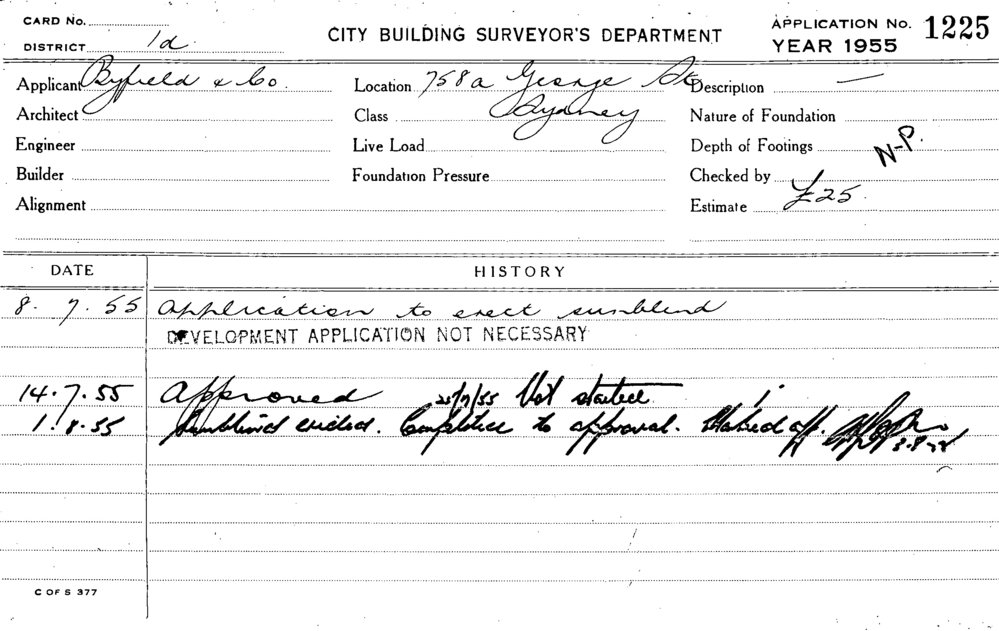 CARD No.
DISTRICT 1d
CITY BUILDING SURVEYOR'S DEPARTMENT
APPLICATION No. 1225
YEAR 1955
Applicant Byfield & Co. Location 758a George St Description —
Architect Class Sydney Nature of Foundation
Engineer Live Load Depth of Footings N-P.
Builder Foundation Pressure Checked by
Alignment Estimate £25
DATE HISTORY
8. 7. 55 Application to erect sunblind
DEVELOPMENT APPLICATION NOT NECESSARY
14.7.55 Approved 25/7/55 Not started
1.8.55 Sunblind erected. Completed to approval. off.
C OF S 377